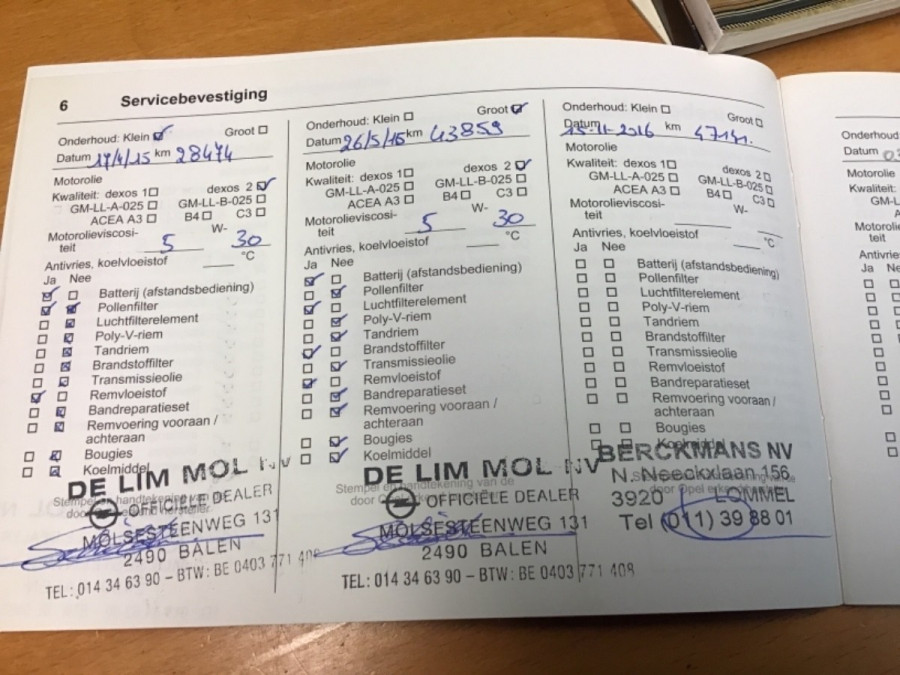 6 Servicebevestiging
Onderhoud: Klein Groot
Datum 17/4/15 km 28474
Motorolie
Kwaliteit: dexos 1 dexos 2
GM-LL-A-025 GM-LL-B-025
ACEA A3 B4 C3
Motorolieviscosi-
teit 5 W- 30
Antivries, koelvloeistof °C
Ja Nee
Batterij (afstandsbediening)
Pollenfilter
Luchtfilterelement
Poly-V-riem
Tandriem
Brandstoffilter
Transmissieolie
Remvloeistof
Bandreparatieset
Remvoering vooraan /
achteraan
Bougies
Koelmiddel
DE LIM MOL NV
OFFICIËLE DEALER
MOLSESTEENWEG 131
2490 BALEN
TEL: 014 34 63 90 – BTW: BE 0403 771 408
Onderhoud: Klein Groot
Datum 26/5/15 km 43859
Motorolie
Kwaliteit: dexos 1 dexos 2
GM-LL-A-025 GM-LL-B-025
ACEA A3 B4 C3
Motorolieviscosi-
teit 5 W- 30
Antivries, koelvloeistof °C
Ja Nee
Batterij (afstandsbediening)
Pollenfilter
Luchtfilterelement
Poly-V-riem
Tandriem
Brandstoffilter
Transmissieolie
Remvloeistof
Bandreparatieset
Remvoering vooraan /
achteraan
Bougies
Koelmiddel
Stempel en handtekening van de
DE LIM MOL NV
OFFICIËLE DEALER
MOLSESTEENWEG 131
2490 BALEN
TEL: 014 34 63 90 – BTW: BE 0403 771 408
Onderhoud: Klein Groot
Datum 15-11-2016 km 47141.
Motorolie
Kwaliteit: dexos 1 dexos 2
GM-LL-A-025 GM-LL-B-025
ACEA A3 B4 C3
Motorolieviscosi-
teit W-
Antivries, koelvloeistof °C
Ja Nee
Batterij (afstandsbediening)
Pollenfilter
Luchtfilterelement
Poly-V-riem
Tandriem
Brandstoffilter
Transmissieolie
Remvloeistof
Bandreparatieset
Remvoering vooraan /
achteraan
Bougies
Koelmiddel
BERCKMANS NV
N. Neeckxlaan 156
3920 LOMMEL
Tel (011) 39 88 01
Onderhoud
Datum
Motorolie
Kwaliteit:
GM-L
Motorolie
teit
Antivries
Ja Ne